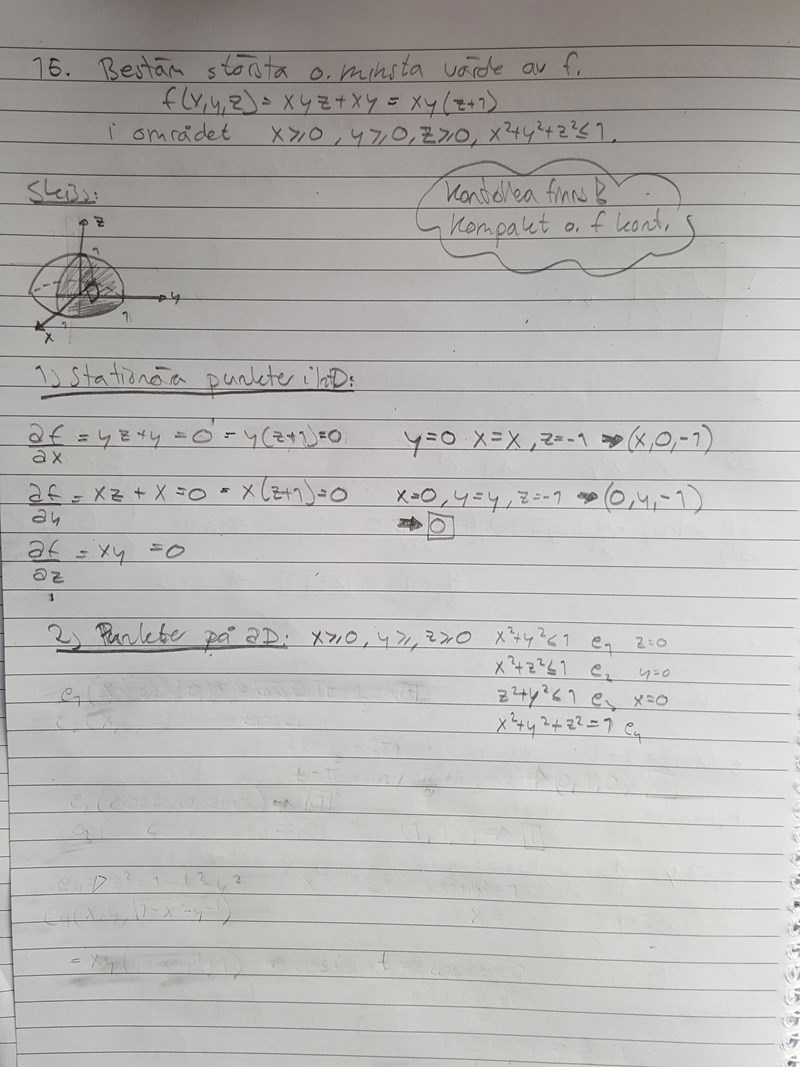 16. Bestäm största o. minsta värde av f.
f(x,y,z) = xyz+xy = xy(z+1)
i området x≥0, y≥0, z≥0, x²+y²+z²≤1.
Skiss:
Kompakt o. f kont.
z
1
y
1
x
1
1) Stationära punkter i D:
∂f/∂x = yz+y = 0 = y(z+1)=0 y=0 x=x, z=-1 ⇒ (x,0,-1)
∂f/∂y = xz+x=0 = x(z+1)=0 x=0, y=y, z=-1 ⇒ (0,y,-1)
⇒ 0
∂f/∂z = xy = 0
2) Punkter på ∂D: x≥0, y≥, z≥0 x²+y²≤1 e₁ z=0
x²+z²≤1 e₂ y=0
z²+y²≤1 e₃ x=0
x²+y²+z²=1 e₄